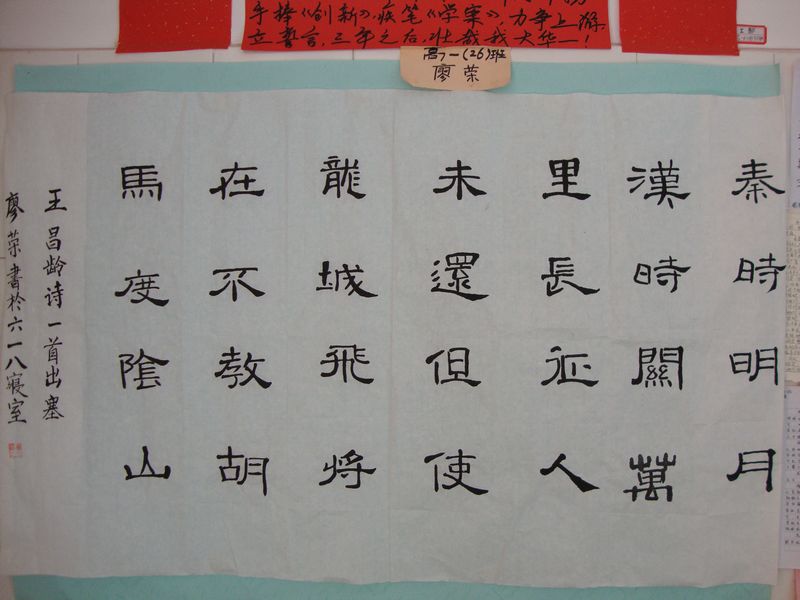 手捧《创新》，疾笔《学案》，力争上游
立誓言，三年之后，壮哉我大华一！
高一（26）班
廖荣
秦時明月
漢時關萬
里長征人
未還但使
龍城飛将
在不教胡
馬度陰山
王昌龄诗一首出塞
廖荣書於六一八寝室